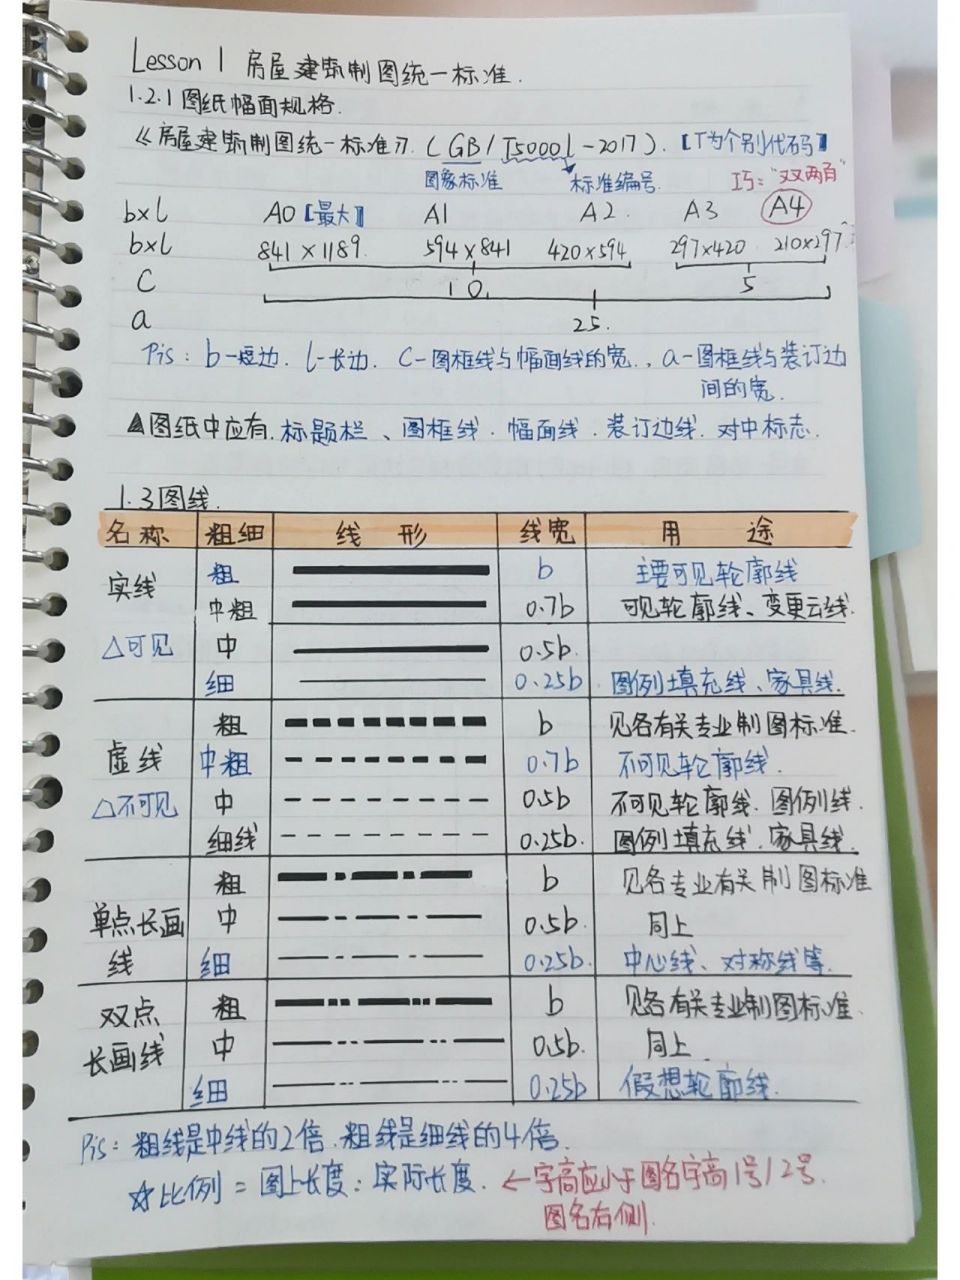 Lesson 1 房屋建筑制图统一标准.
1.2.1 图纸幅面规格.
《房屋建筑制图统一标准》. (GB/T50001-2017). 【T为个别代码】
国家标准 标准编号. 巧:"双两百"
b×l A0【最大】 A1 A2. A3 A4
b×l 841×1189. 594×841 420×594 297×420 210×297
C 10 5
a 25.
Pis: b-短边. l-长边. C-图框线与幅面线的宽., a-图框线与装订边
间的宽.
▲图纸中应有.标题栏、图框线.幅面线.装订边线.对中标志.
1.3图线.
名称 粗细 线形 线宽 用途
实线 粗 b 主要可见轮廓线
中粗 0.7b 可见轮廓线、变更云线.
△可见 中 0.5b.
细 0.25b 图例填充线、家具线.
粗 b 见各有关专业制图标准.
虚线 中粗 0.7b 不可见轮廓线.
△不可见 中 0.5b 不可见轮廓线.图例线.
细线 0.25b. 图例填充线.家具线.
粗 b 见各专业有关制图标准
单点长画 中 0.5b. 同上
线 细 0.25b. 中心线、对称线等.
双点 粗 b 见各有关专业制图标准.
长画线 中 0.5b. 同上.
细 0.25b 假想轮廓线.
Pis: 粗线是中线的2倍.粗线是细线的4倍.
☆比例=图上长度:实际长度. ←字高应小于图名字高1号/2号.
图名右侧.